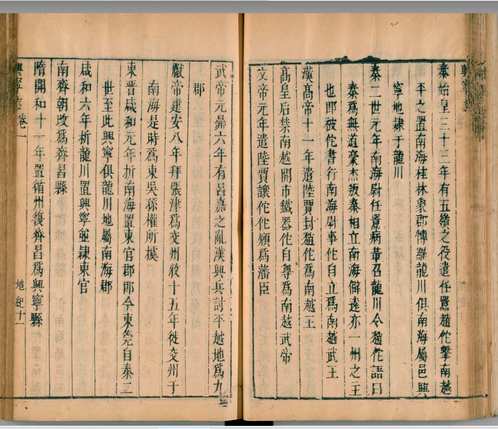 秦始皇三十三年有五嶺之役遣任囂趙佗擊南越
平之置南海桂林象郡博羅龍川俱南海屬邑興
寧地隸于龍川
秦二世元年南海尉任囂病革召龍川令趙佗語曰
秦爲無道豪杰叛秦相立南海僻遠亦一州之王
也卽被佗書行南海尉事佗自立爲南越武王
漢高帝十一年遣陸賈封趙佗爲南越王
高皇后禁南越關市鐵器佗自尊爲南越武帝
文帝元年遣陸賈讓佗佗願爲藩臣
武帝元鼎六年有呂嘉之亂漢興兵討平越地爲九
郡
獻帝建安八年拜張津爲交州牧十五年徙交州于
南海是時爲東吳孫權所據
東晉咸和元年析南海置東官郡郡今東莞自秦二
世至此興寧俱龍川地屬南海郡
咸和六年析龍川置興寧縣隸東官
南齊朝改爲齊昌縣
隋開和十一年置循州復齊昌爲興寧縣
興寧 卷一
地紀十一